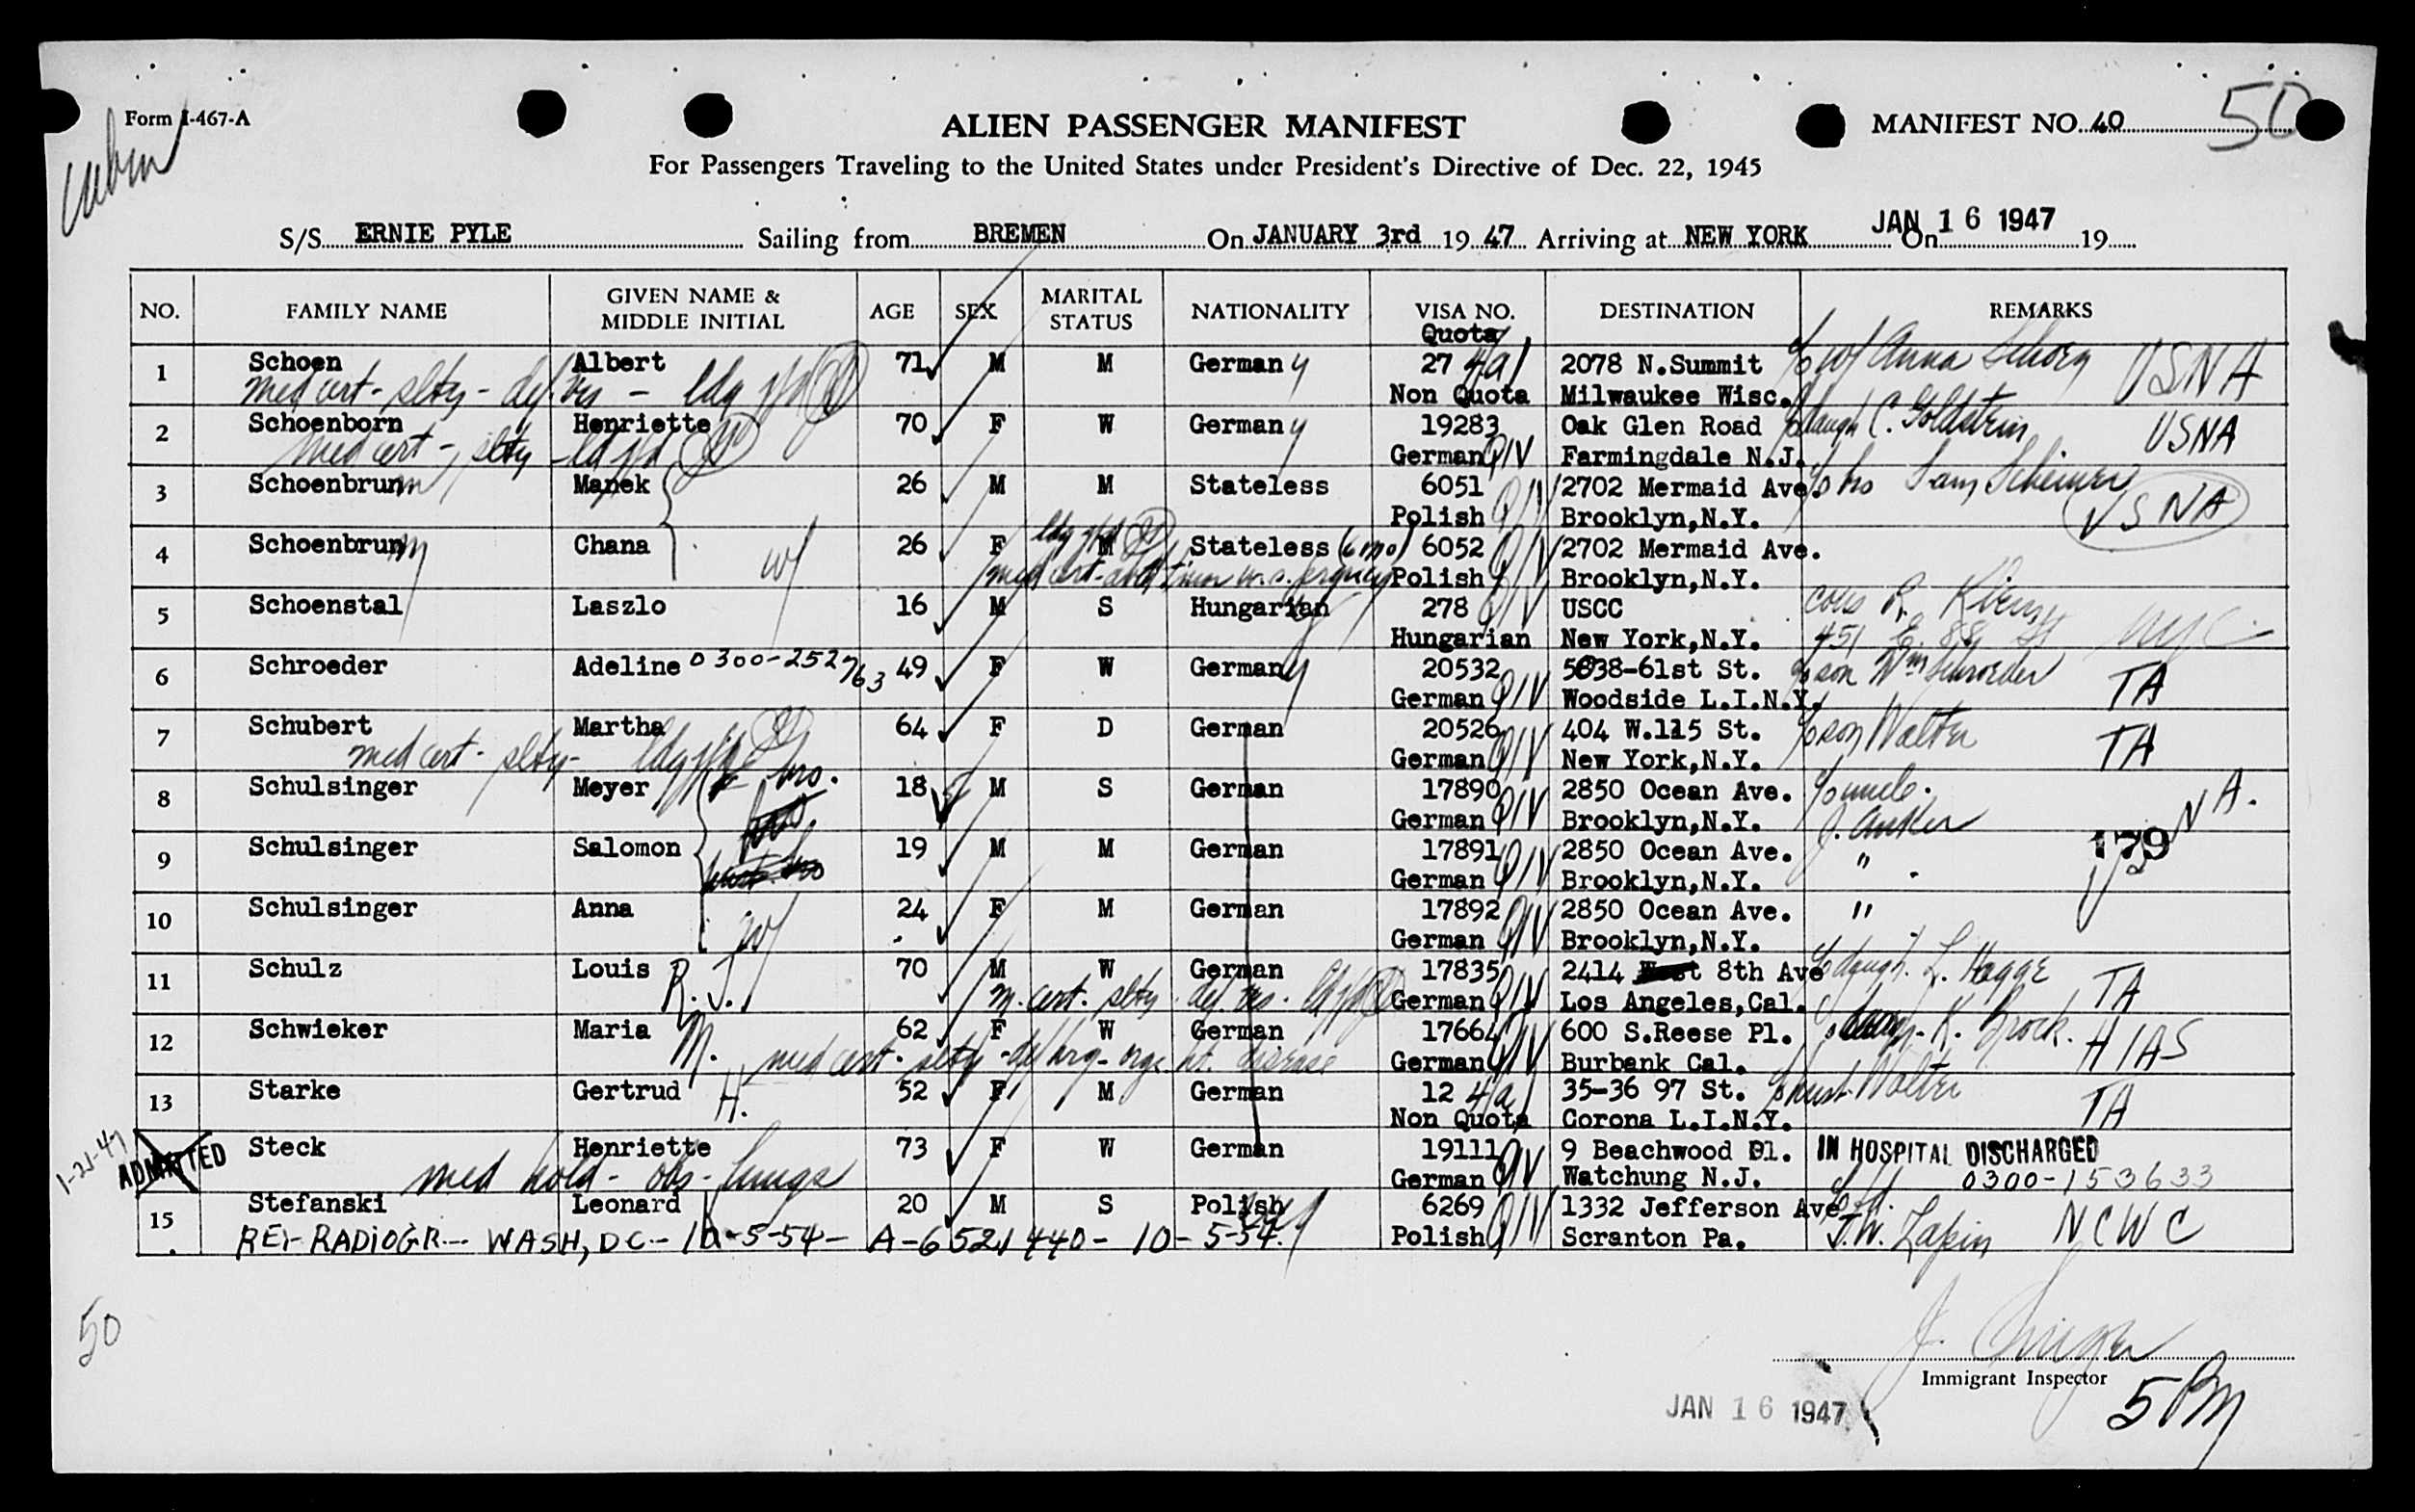 Form I-467-A
ALIEN PASSENGER MANIFEST
MANIFEST NO. 40
50
For Passengers Traveling to the United States under President's Directive of Dec. 22, 1945
S/S ERNIE PYLE Sailing from BREMEN On JANUARY 3rd 19 47 Arriving at NEW YORK On JAN 16 1947 19
NO. FAMILY NAME GIVEN NAME & MIDDLE INITIAL AGE SEX MARITAL STATUS NATIONALITY VISA NO. DESTINATION REMARKS
Quota
1 Schoen Albert 71 M M Germany 27 4a1 2078 N.Summit c/o w/ Anna Schoen USNA
med cert - slty - def. vis - ldg Non Quota Milwaukee Wisc.
2 Schoenborn Henriette 70 F W Germany 19283 Oak Glen Road c/o daugh C. Goldstein USNA
med cert - slty - German QIV Farmingdale N.J.
3 Schoenbrunn Manek 26 M M Stateless 6051 2702 Mermaid Ave. c/o bro Sam Scheiner
Polish QIV Brooklyn,N.Y. USNA
4 Schoenbrunn Chana w/ 26 F M Stateless (6 mo) 6052 2702 Mermaid Ave.
med cert Polish QIV Brooklyn,N.Y.
5 Schoenstal Laszlo 16 M S Hungarian 278 QIV USCC cous R.
Hungarian New York,N.Y. 451 E. 88 St NYC
6 Schroeder Adeline 0300-252763 49 F W Germany 20532 5038-61st St. c/o son Wm Schroeder TA
German QIV Woodside L.I.N.Y.
7 Schubert Martha 64 F D German 20526 404 W.115 St. c/o son Walter TA
med cert - slty - German QIV New York,N.Y.
8 Schulsinger Meyer bro. 18 M S German 17890 2850 Ocean Ave. c/o uncle.
German QIV Brooklyn,N.Y. J. Anker
9 Schulsinger Salomon 19 M M German 17891 2850 Ocean Ave. " 179 USNA.
German QIV Brooklyn,N.Y.
10 Schulsinger Anna w/ 24 F M German 17892 2850 Ocean Ave. "
German QIV Brooklyn,N.Y.
11 Schulz Louis R.J. 70 M W German 17835 2414 8th Ave c/o daugh. L. Hagge TA
m. cert. slty. def. vis. German QIV Los Angeles,Cal.
12 Schwieker Maria M. 62 F W German 17664 600 S.Reese Pl. K. Brock. HIAS
med cert. slty - def org - orgc. ht. disease German QIV Burbank Cal.
13 Starke Gertrud H. 52 F M German 12 4a1 35-36 97 St. c/o husb. Walter TA
Non Quota Corona L.I.N.Y.
1-21-47 ADMITTED Steck Henriette 73 F W German 19111 9 Beachwood Pl. IN HOSPITAL DISCHARGED
med hold - obs - lungs German QIV Watchung N.J. 0300-153633
15 Stefanski Leonard 20 M S Polish 6269 1332 Jefferson Ave
RE:- RADIOGR.- WASH, DC- 10-5-54- A-6521440- 10-5-54. Polish QIV Scranton Pa. J.W. Lapin NCWC
50
J. Singer
Immigrant Inspector
JAN 16 1947
5 PM